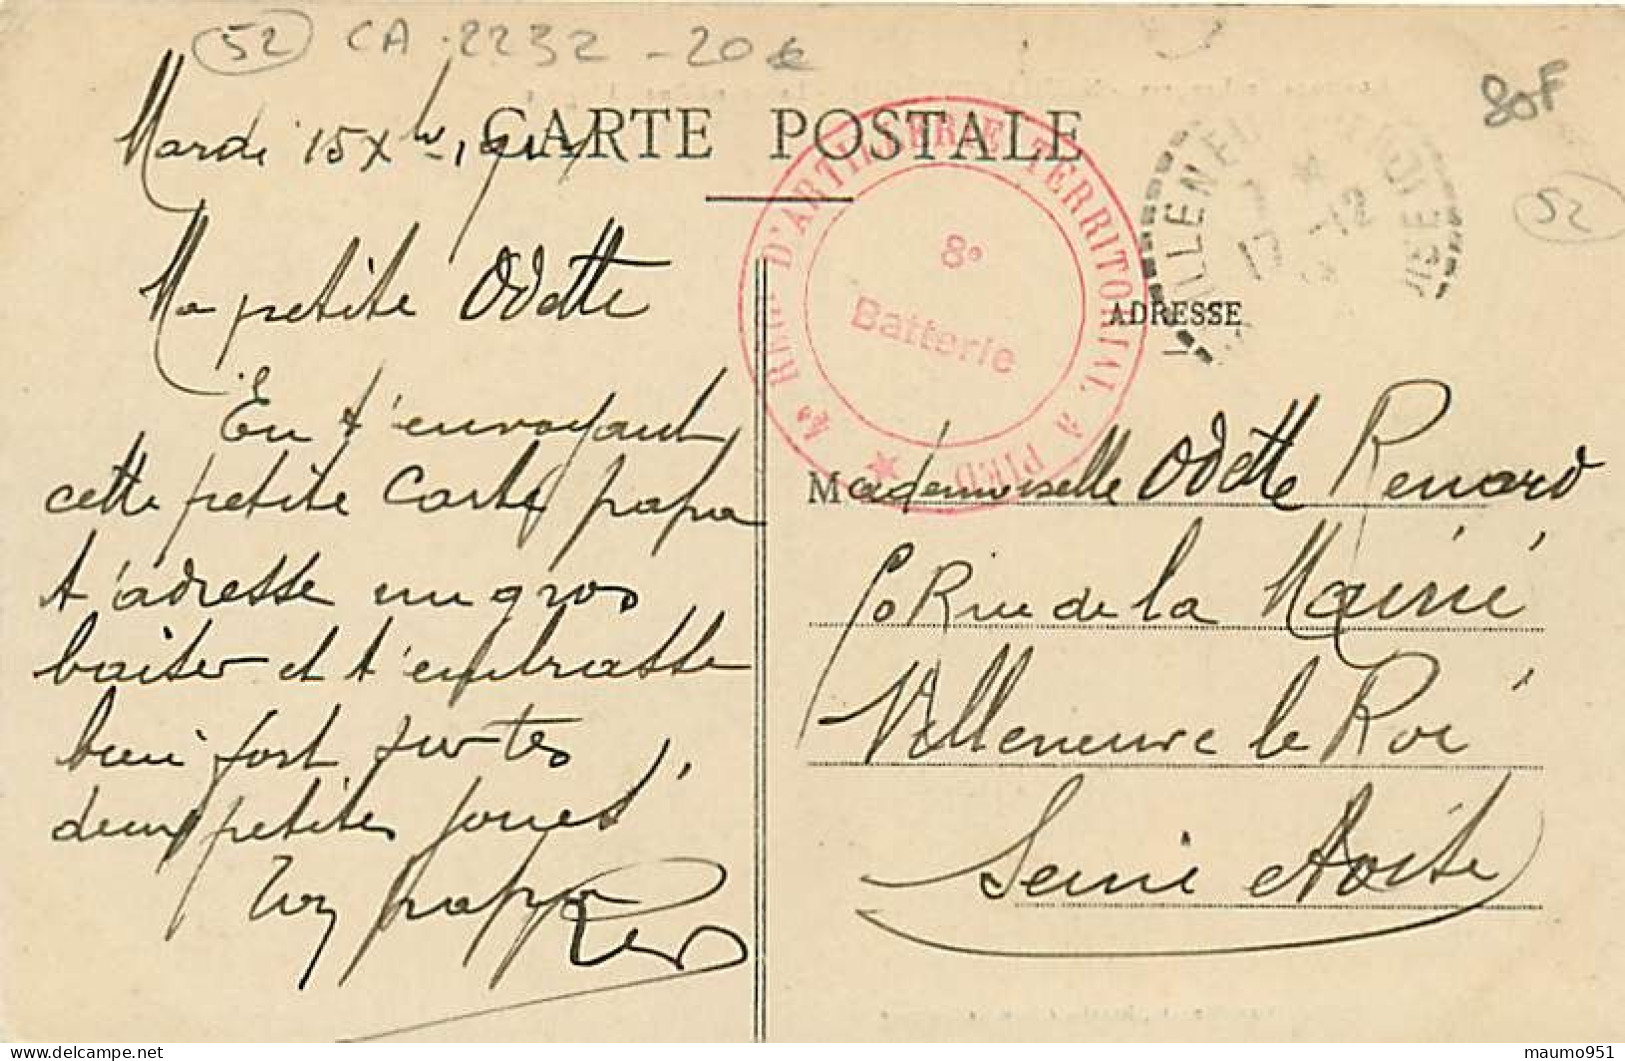 52 CA 2232 - 20€
80F
52
Mardi 15 Xbre 1914
CARTE POSTALE
4e REGt D'ARTILLERIE TERRITORIAL A PIED
8e
Batterie
ADRESSE
Ma petite Odette
En t'envoyant
cette petite carte papa
t'adresse un gros
baiser et t'embrasse
bien fort sur tes
deux petites joues
Ton papa
Mademoiselle Odette Renard
Rue de la Mairie
Villeneuve le Roi
Seine et Oise
maumo951